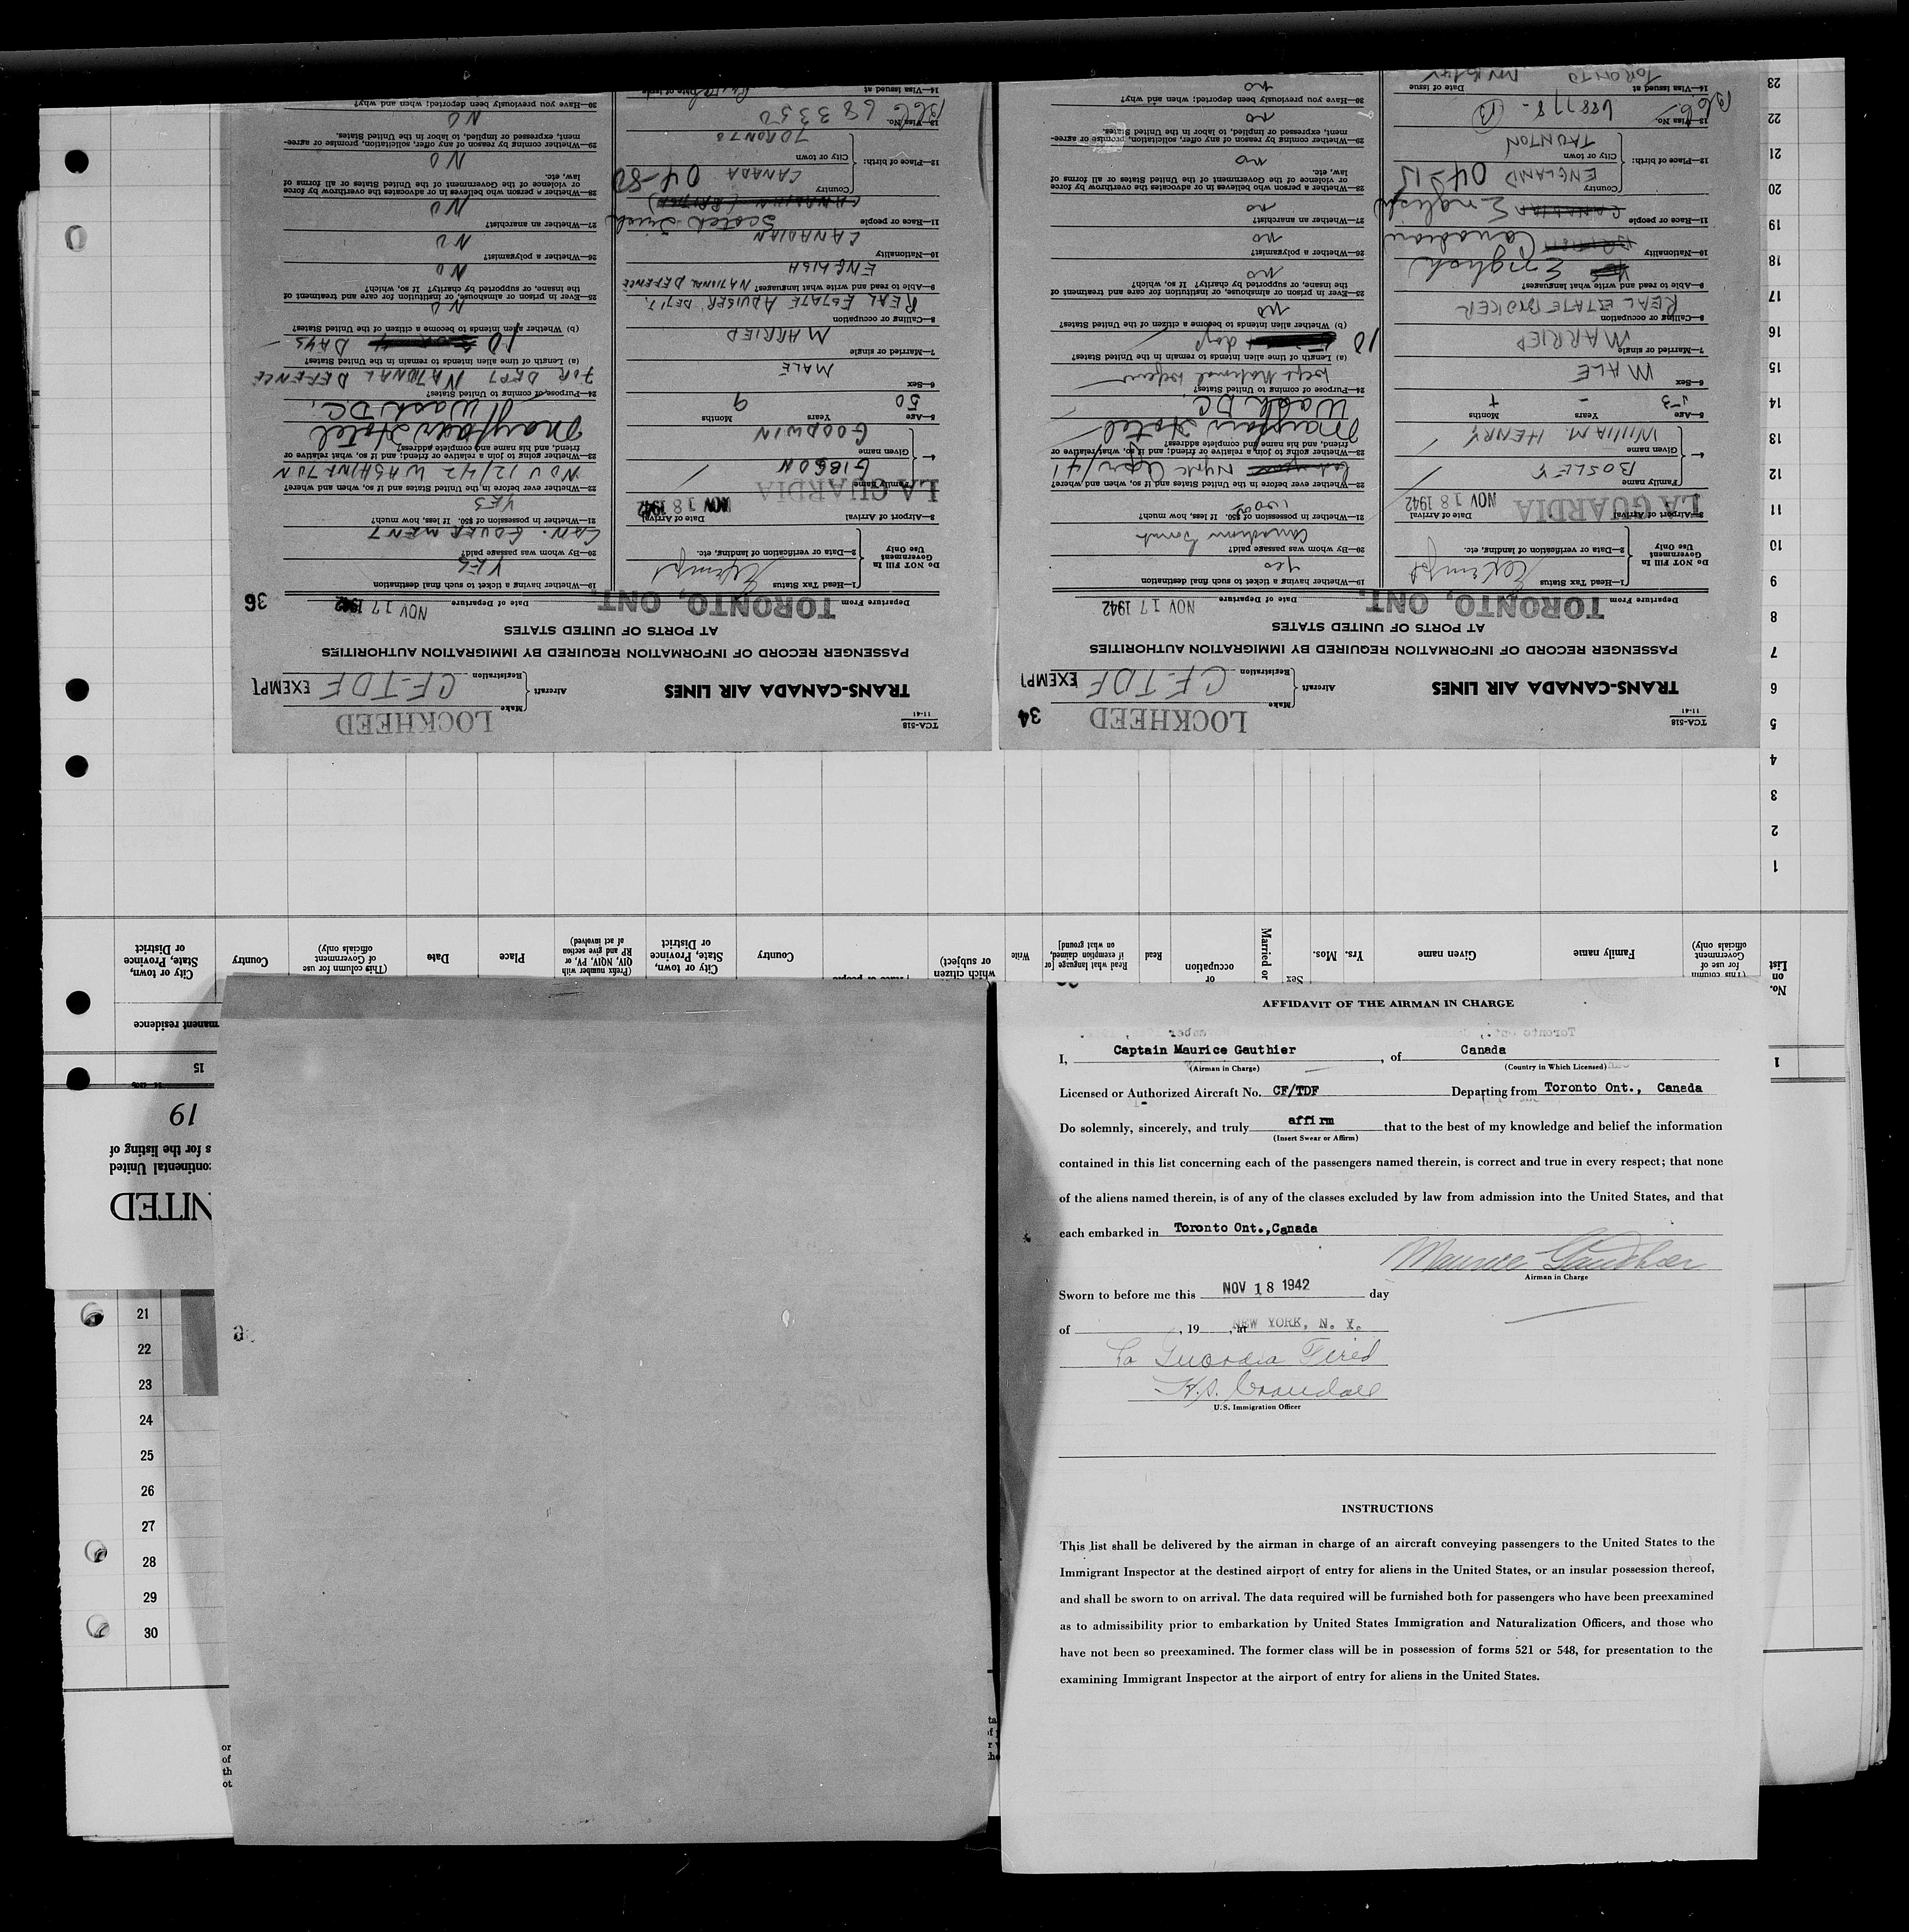 TCA-518
11-41
LOCKHEED
34
TRANS-CANADA AIR LINES
Aircraft
Make
Registration CF-TDF EXEMPT
PASSENGER RECORD OF INFORMATION REQUIRED BY IMMIGRATION AUTHORITIES
AT PORTS OF UNITED STATES
Departure From TORONTO, ONT. Date of Departure NOV 17 1942
DO NOT FILL IN
Government
Use Only
1—Head Tax Status Exempt
2—Data or verification of landing, etc.
3—Airport of Arrival LA GUARDIA Date of Arrival NOV 18 1942
4—
Family name
BOSLEY
Given name
WILLIAM HENRY
5—Age 53 Years Months
6—Sex
MALE
7—Married or single
MARRIED
8—Calling or occupation
REAL ESTATE BROKER
9—Able to read and write what languages?
English
10—Nationality
Canadian
11—Race or people
CANADIAN English
12—Place of birth:
Country
ENGLAND
City or town
TAUNTON
13—Visa No.
14—Visa Issued at Date of Issue
TORONTO
19—Whether having a ticket to such final destination
yes
20—By whom was passage paid?
21—Whether in possession of $50. If less, how much?
22—Whether ever before in the United States and if so, when and where?
23—Whether going to join a relative or friend; and if so, what relative or
friend, and his name and complete address?
Mayfair Hotel
Wash D.C.
24—Purpose of coming to United States?
Dept National Defence
(a) Length of time alien intends to remain in the United States?
10 days
(b) Whether alien intends to become a citizen of the United States?
no
25—Ever in prison or almshouse, or institution for care and treatment of
the insane, or supported by charity? If so, which?
no
26—Whether a polygamist?
no
27—Whether an anarchist?
no
28—Whether a person who believes in or advocates the overthrow by force
or violence of the Government of the United States or all forms of
law, etc.
no
29—Whether coming by reason of any offer, solicitation, promise or agree-
ment, expressed or implied, to labor in the United States.
no
30—Have you previously been deported; when and why?
no
TCA-518
11-41
LOCKHEED
TRANS-CANADA AIR LINES
Aircraft
Make
Registration CF-TDF EXEMPT
PASSENGER RECORD OF INFORMATION REQUIRED BY IMMIGRATION AUTHORITIES
AT PORTS OF UNITED STATES
Departure From TORONTO, ONT. Date of Departure NOV 17 1942
36
DO NOT FILL IN
Government
Use Only
1—Head Tax Status Exempt
2—Data or verification of landing, etc.
3—Airport of Arrival LA GUARDIA Date of Arrival NOV 18 1942
4—
Family name
GIBSON
Given name
GOODWIN
5—Age 50 Years 9 Months
6—Sex
MALE
7—Married or single
MARRIED
8—Calling or occupation
REAL ESTATE ADVISER DEPT
9—Able to read and write what languages? NATIONAL DEFENCE
ENGLISH
10—Nationality
CANADIAN
11—Race or people
Scotch Irish
12—Place of birth:
Country
CANADA
City or town
TORONTO
13—Visa No. 683350
14—Visa Issued at Date of Issue
19—Whether having a ticket to such final destination
YES
20—By whom was passage paid?
CAN. GOVERMENT
21—Whether in possession of $50. If less, how much?
YES
22—Whether ever before in the United States and if so, when and where?
NOV 12/42 WASHINGTON
23—Whether going to join a relative or friend; and if so, what relative or
friend, and his name and complete address?
Mayfair Hotel
Wash D.C.
24—Purpose of coming to United States?
FOR DEPT NATIONAL DEFENCE
(a) Length of time alien intends to remain in the United States?
10 DAYS
(b) Whether alien intends to become a citizen of the United States?
NO
25—Ever in prison or almshouse, or institution for care and treatment of
the insane, or supported by charity? If so, which?
NO
26—Whether a polygamist?
NO
27—Whether an anarchist?
NO
28—Whether a person who believes in or advocates the overthrow by force
or violence of the Government of the United States or all forms of
law, etc.
NO
29—Whether coming by reason of any offer, solicitation, promise or agree-
ment, expressed or implied, to labor in the United States.
NO
30—Have you previously been deported; when and why?
No.
on
List
(This column
for use of
Government
officials only)
Family name
Given name
Yrs. Mos.
Sex
Married or
or
occupation
Read
Read what language [or
if exemption claimed,
on what ground]
Write
which citizen
or subject)
Country
City or town,
State, Province
or District
(Prefix number with
QIV, NQIV, PV, or
RP and give section
of act involved)
Place
Date
(This column for use
of Government
officials only)
Country
City or town,
State, Province
or District
manent residence
1
15
1
2
3
4
5
6
7
8
9
10
11
12
13
14
15
16
17
18
19
20
21
22
23
NITED
ontinental United
s for the listing of
19
21
22
23
24
25
26
27
28
29
30
AFFIDAVIT OF THE AIRMAN IN CHARGE
I, Captain Maurice Gauthier, of Canada
(Airman in Charge) (Country in Which Licensed)
Licensed or Authorized Aircraft No. CF/TDF Departing from Toronto Ont., Canada
Do solemnly, sincerely, and truly affirm that to the best of my knowledge and belief the information
(Insert Swear or Affirm)
contained in this list concerning each of the passengers named therein, is correct and true in every respect; that none
of the aliens named therein, is of any of the classes excluded by law from admission into the United States, and that
each embarked in Toronto Ont.,Canada
Maurice Gauthier
Airman in Charge
Sworn to before me this NOV 18 1942 day
of , 19 , at NEW YORK, N. Y.
La Guardia Field
H.S. Crandall
U.S. Immigration Officer
INSTRUCTIONS
This list shall be delivered by the airman in charge of an aircraft conveying passengers to the United States to the
Immigrant Inspector at the destined airport of entry for aliens in the United States, or an insular possession thereof,
and shall be sworn to on arrival. The data required will be furnished both for passengers who have been preexamined
as to admissibility prior to embarkation by United States Immigration and Naturalization Officers, and those who
have not been so preexamined. The former class will be in possession of forms 521 or 548, for presentation to the
examining Immigrant Inspector at the airport of entry for aliens in the United States.